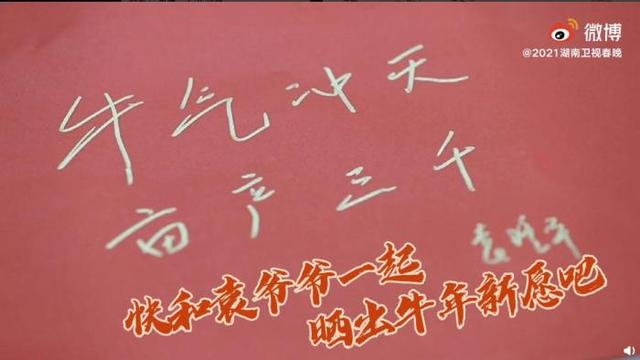 微博
@2021湖南卫视春晚
牛气冲天
亩产三千
袁隆平
快和袁爷爷一起
晒出牛年新愿吧